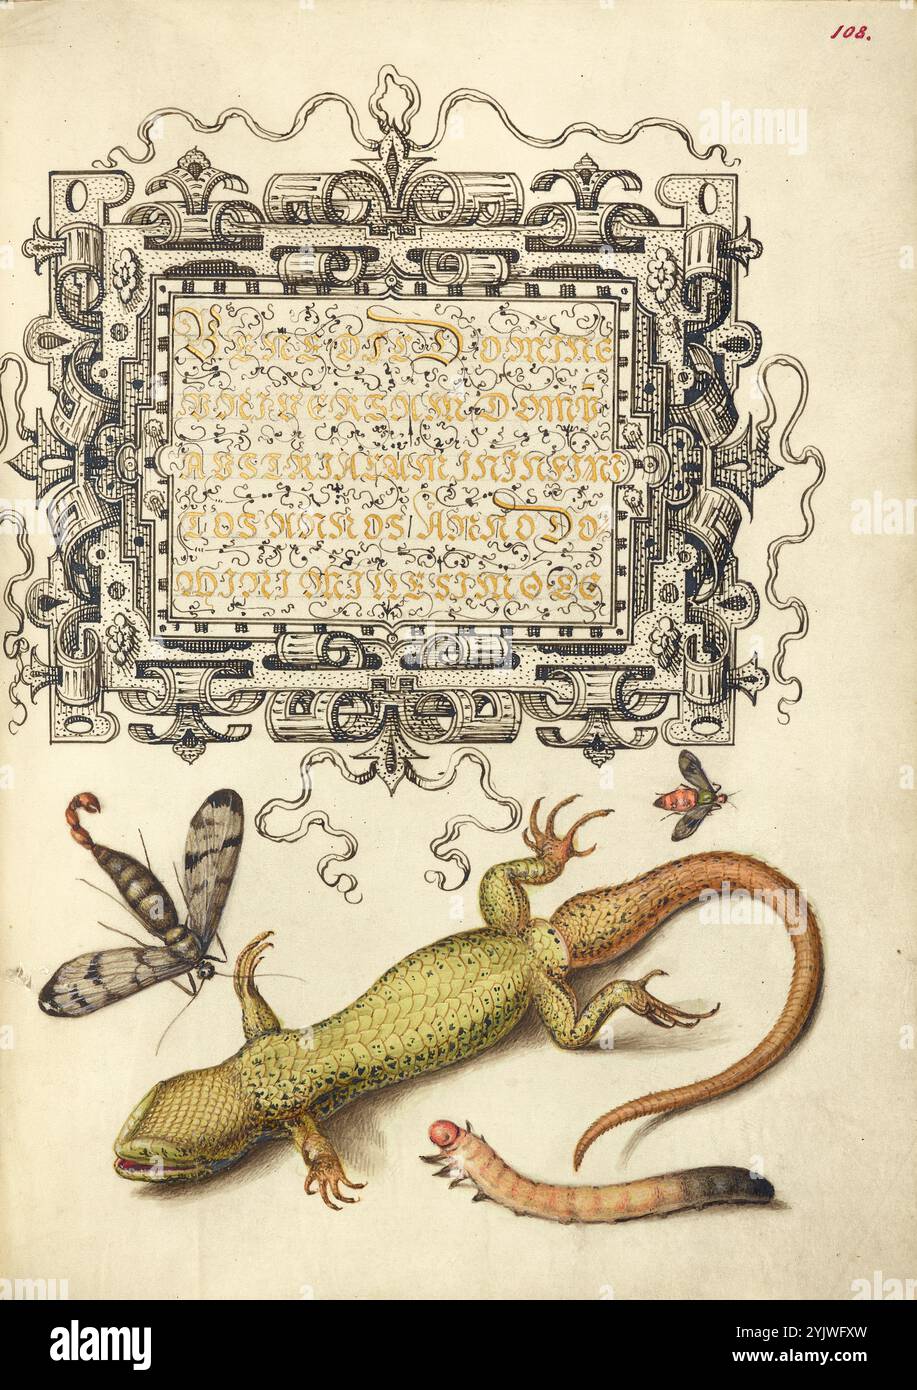 108.
BENEDIC DOMINE
VNIVERSAM DOMV̄
AVSTRIACAM IN INFINI
TOS ANNOS/ ANNO DO
MINI MILLESIMO
alamy
alamy
Image ID: 2YJWFXW
www.alamy.com